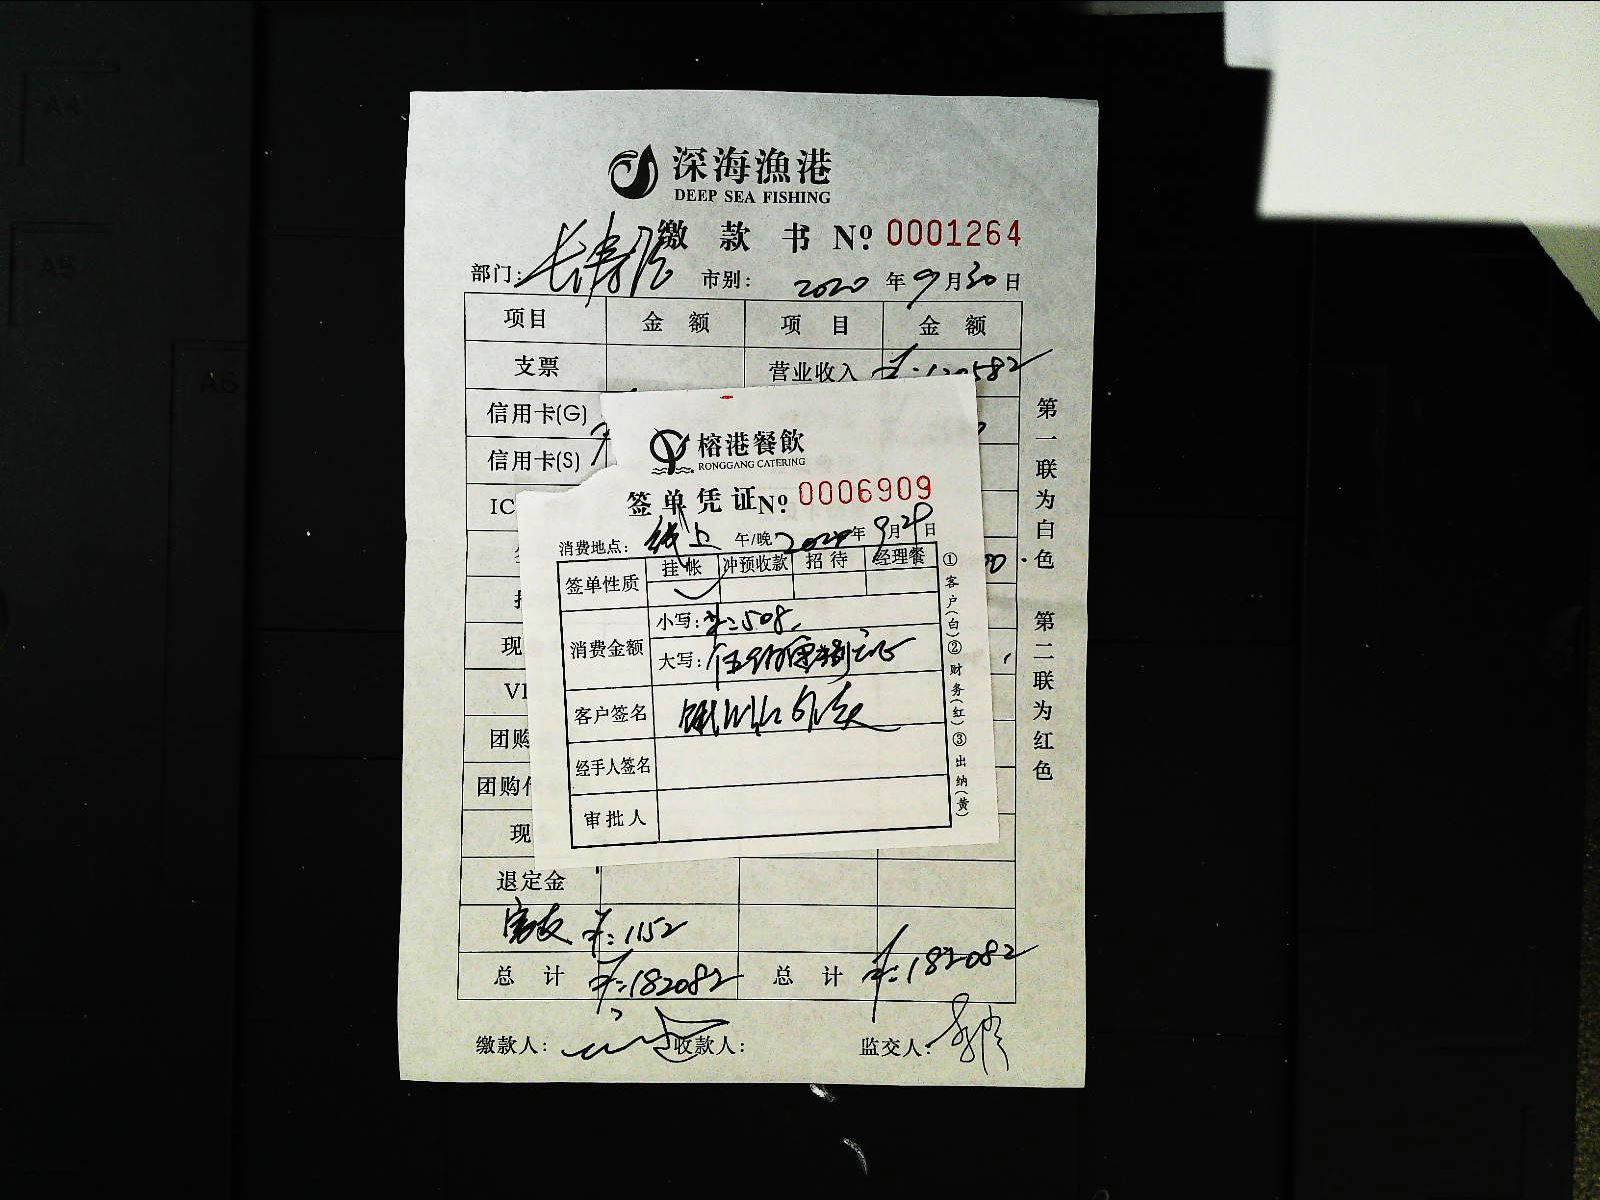 A4
A5
A6
深海漁港
DEEP SEA FISHING
缴款书 Nº 0001264
部门: 市别: 2020年9月30日
项目 金额 项目 金额
支票 营业收入
信用卡(G)
信用卡(S)
IC
现
VI
团购
团购
现
退定金
¥:1152
总计 ¥:182082 总计 ¥:182082
缴款人: 收款人: 监交人:
第一联为白色 第二联为红色
榕港餐飲
RONGGANG CATERING
签单凭证Nº 0006909
消费地点: 线上 午/晚 年9月29日
签单性质 挂帐 冲预收款 招待 经理餐
消费金额 小写: ¥:508.
大写:
客户签名
经手人签名
审批人
①客户(白)②财务(红)③出纳(黄)